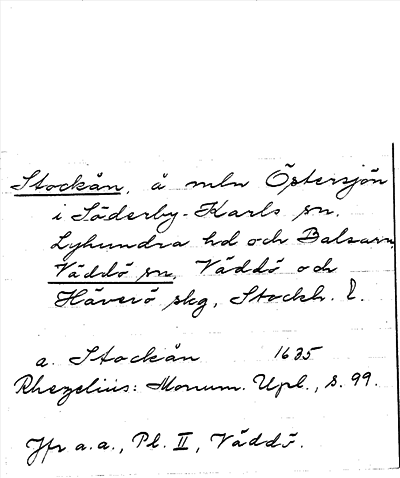 Stockån, å mln Östersjön
i Söderby-Karls sn.
Lyhundra hd och
Väddö sn, Väddö och
Häverö skg, Stockh. l.
a. Stockån 1635
Rhezelius: Monum. Upl., s. 99.
Jfr a.a., Pl. II, Väddö.